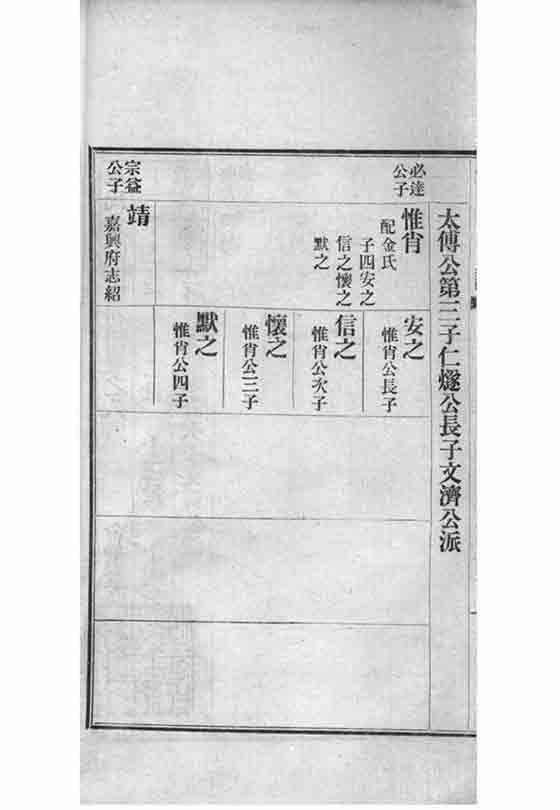 太傅公第三子仁燧公長子文濟公派
必達
公子
惟肖
配金氏
子四安之
信之懷之
默之
安之
惟肖公長子
信之
惟肖公次子
懷之
惟肖公三子
默之
惟肖公四子
宗益
公子
靖
嘉興府志紹